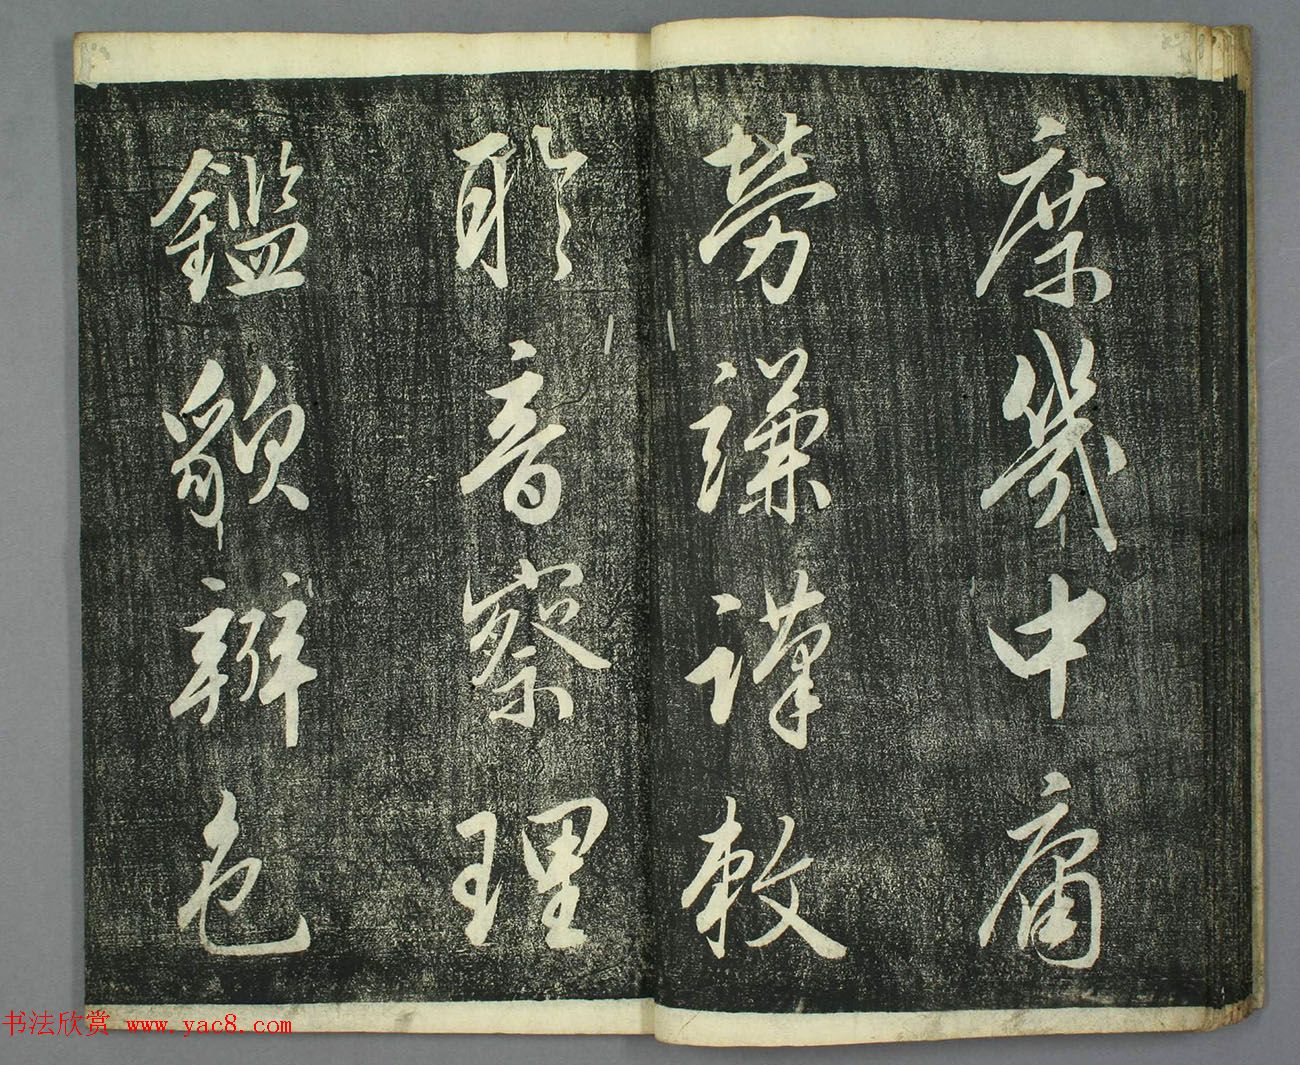 庶幾中庸
勞謙謹敕
聆音察理
鑑皃辯色
书法欣赏 www.yac8.com